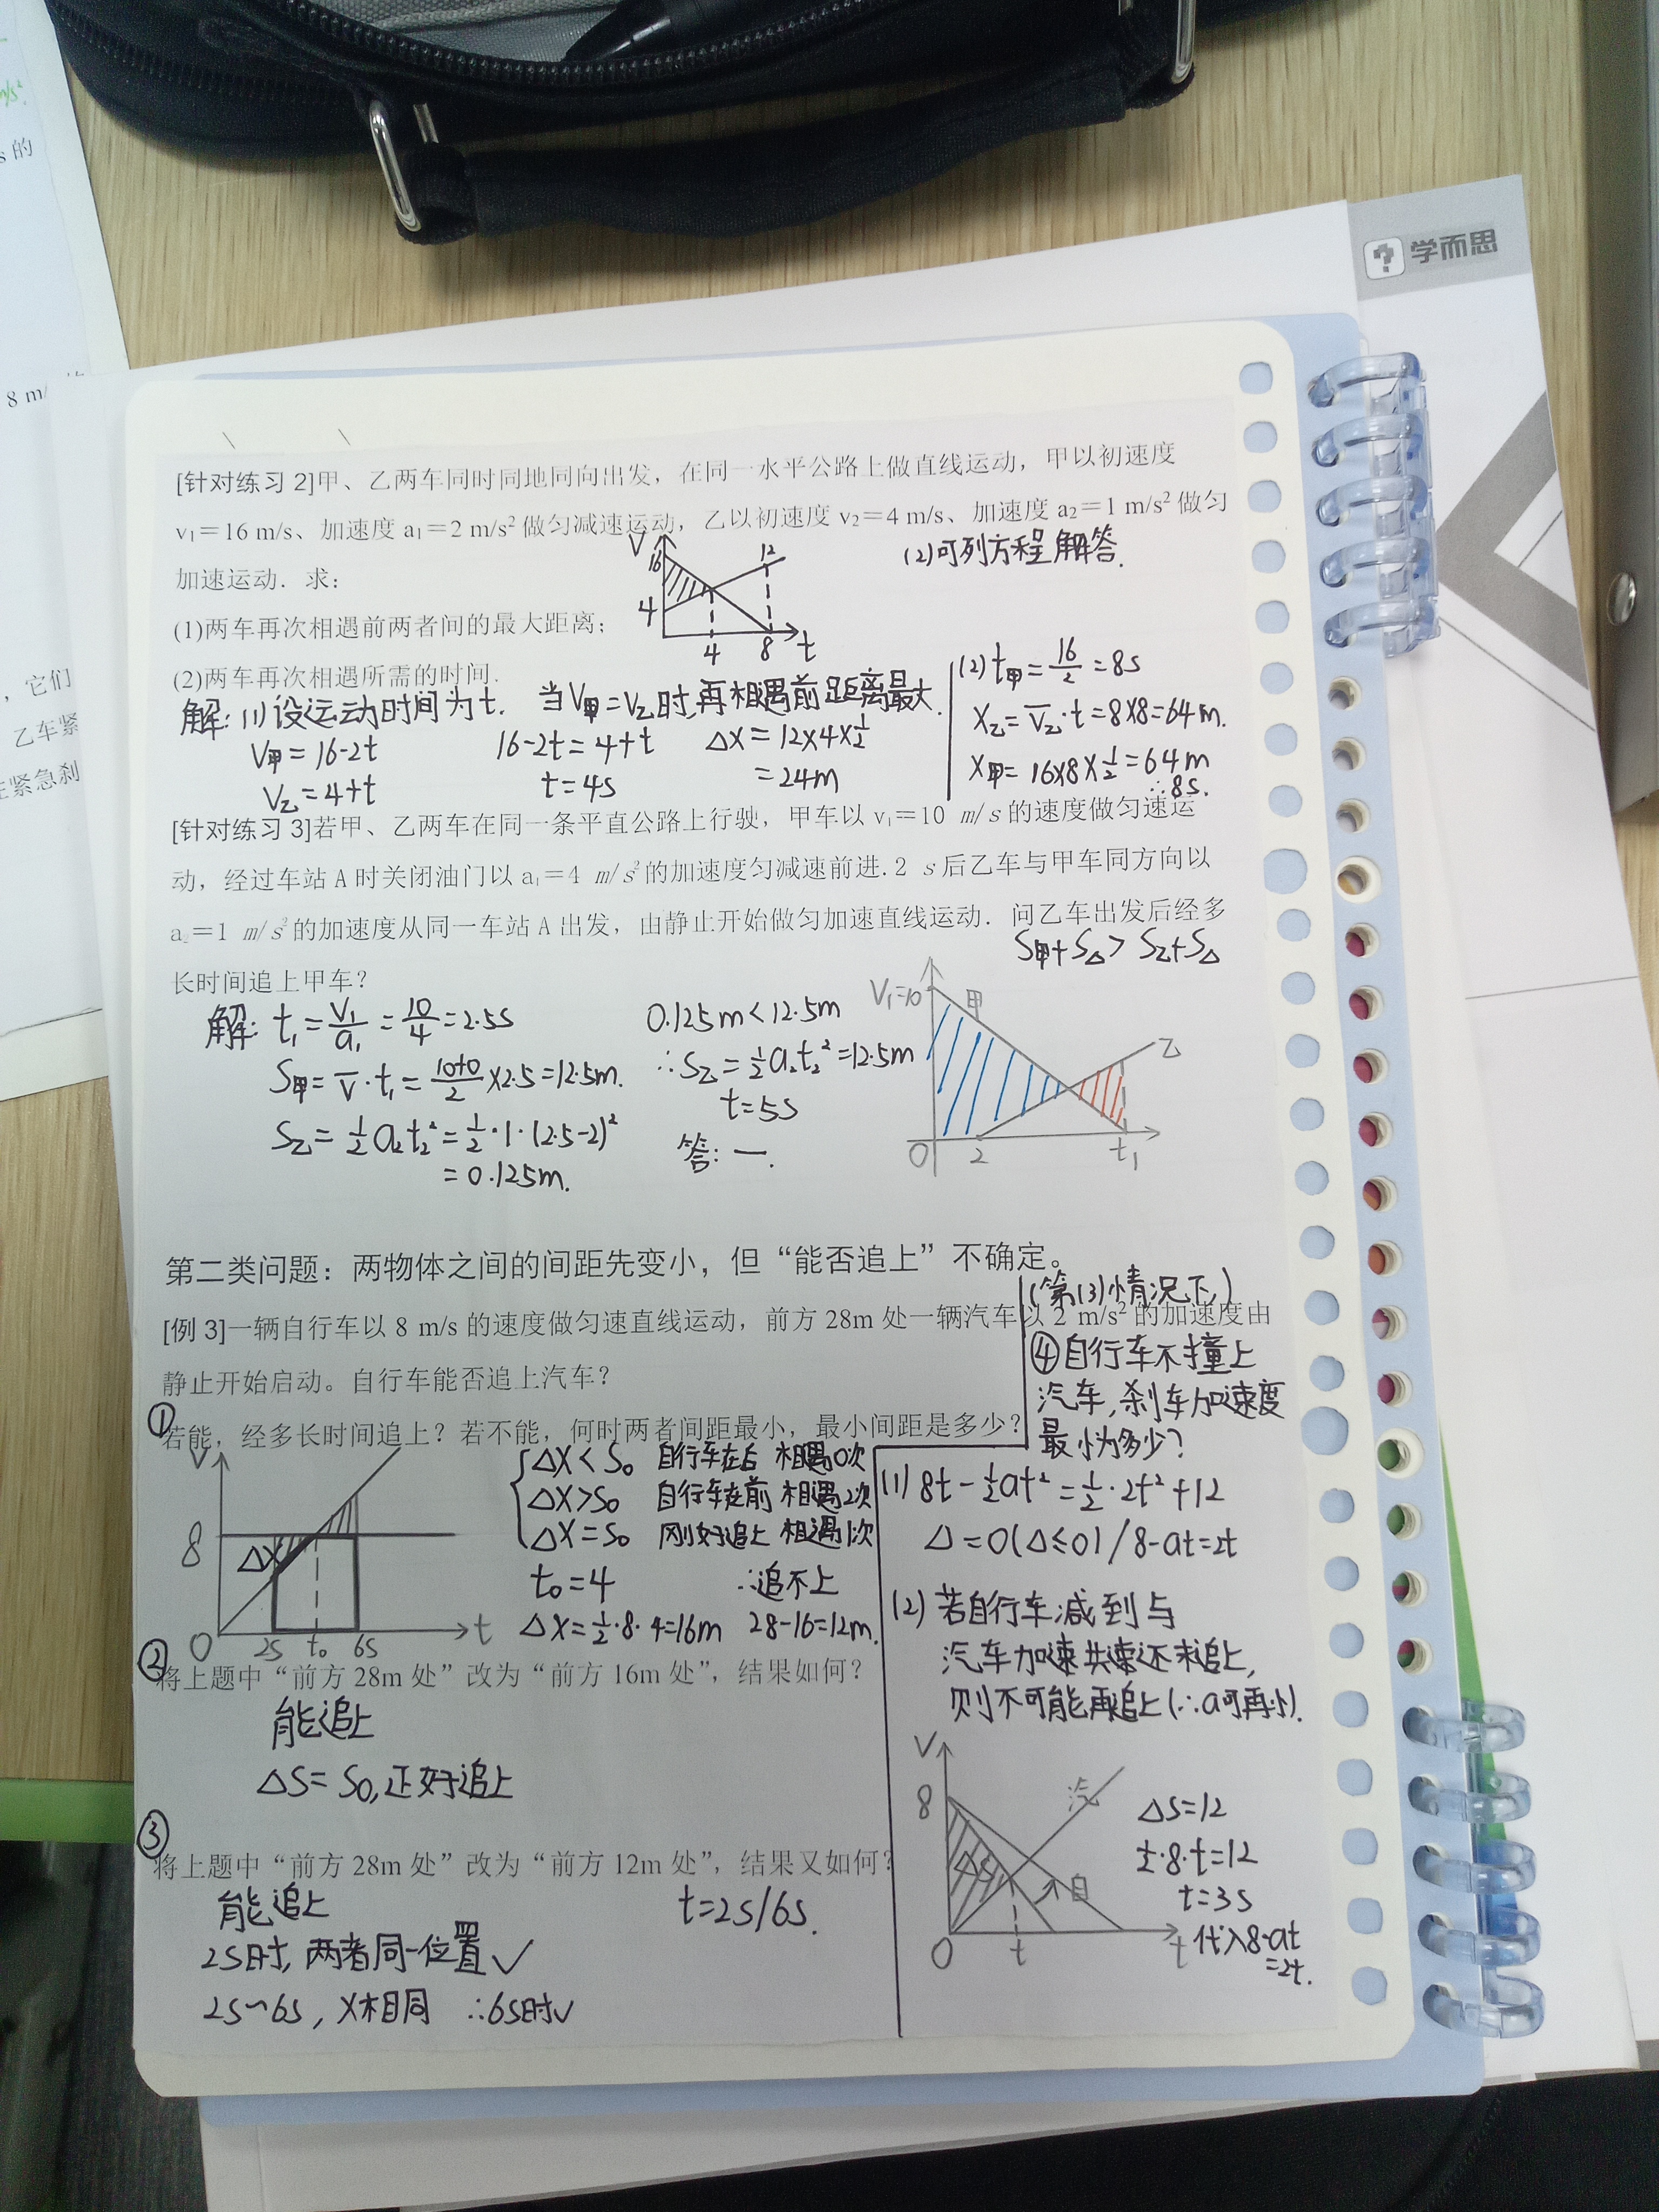 学而思
m/s²
s 的
8 m/
，它们
乙车紧
在紧急刹
[针对练习 2]甲、乙两车同时同地同向出发，在同一水平公路上做直线运动，甲以初速度
v₁＝16 m/s、加速度 a₁＝2 m/s² 做匀减速运动，乙以初速度 v₂＝4 m/s、加速度 a₂＝1 m/s² 做匀
加速运动．求：
(2)可列方程解答.
(1)两车再次相遇前两者间的最大距离；
(2)两车再次相遇所需的时间．
V
16
12
4
4
8
t
解: (1)设运动时间为t. 当V甲=V乙时,再相遇前距离最大.
V甲=16-2t
V乙=4+t
16-2t=4+t
t=4s
Δx=12×4×½
=24m
(2) t甲=16/2=8s
X乙=V̄乙·t=8×8=64m.
X甲=16×8×½=64m
∴8s.
[针对练习 3]若甲、乙两车在同一条平直公路上行驶，甲车以 v₁＝10 m/s 的速度做匀速运
动，经过车站 A 时关闭油门以 a₁＝4 m/s² 的加速度匀减速前进. 2 s 后乙车与甲车同方向以
a₂＝1 m/s² 的加速度从同一车站 A 出发，由静止开始做匀加速直线运动．问乙车出发后经多
长时间追上甲车？
S甲+S△>S乙+S△
解: t₁=V₁/a₁=10/4=2.5s
S甲=V̄·t₁=(10+0)/2×2.5=12.5m.
S乙=½a₂t₂²=½·1·(2.5-2)²
=0.125m.
0.125m<12.5m
∴S乙=½a₂t₂²=12.5m
t=5s
答: 一.
V₁=10
甲
乙
O
2
t₁
第二类问题：两物体之间的间距先变小，但“能否追上”不确定。
(第(3)情况下)
[例 3]一辆自行车以 8 m/s 的速度做匀速直线运动，前方 28m 处一辆汽车以 2 m/s² 的加速度由
静止开始启动。自行车能否追上汽车？
①
若能，经多长时间追上？若不能，何时两者间距最小，最小间距是多少？
④自行车不撞上
汽车,刹车加速度
最小为多少?
V
8
Δx
O
2s
t₀
6s
t
Δx<S₀ 自行车在后 相遇0次
Δx>S₀ 自行车在前 相遇2次
Δx=S₀ 刚好追上 相遇1次
t₀=4 ∴追不上
Δx=½·8·4=16m 28-16=12m.
(1) 8t-½at²=½·2t²+12
Δ=0(Δ≤0)/8-at=2t
(2) 若自行车减到与
汽车加速共速还未追上,
则不可能再追上(∴a可再小).
②
将上题中“前方 28m 处”改为“前方 16m 处”，结果如何？
能追上
ΔS=S₀,正好追上
③
将上题中“前方 28m 处”改为“前方 12m 处”，结果又如何？
能追上
t=2s/6s.
2s时,两者同一位置✓
2s~6s, x相同 ∴6s时✓
V
8
汽
ΔS
自
O
t
t
ΔS=12
½·8·t=12
t=3s
代入8-at
=2t.